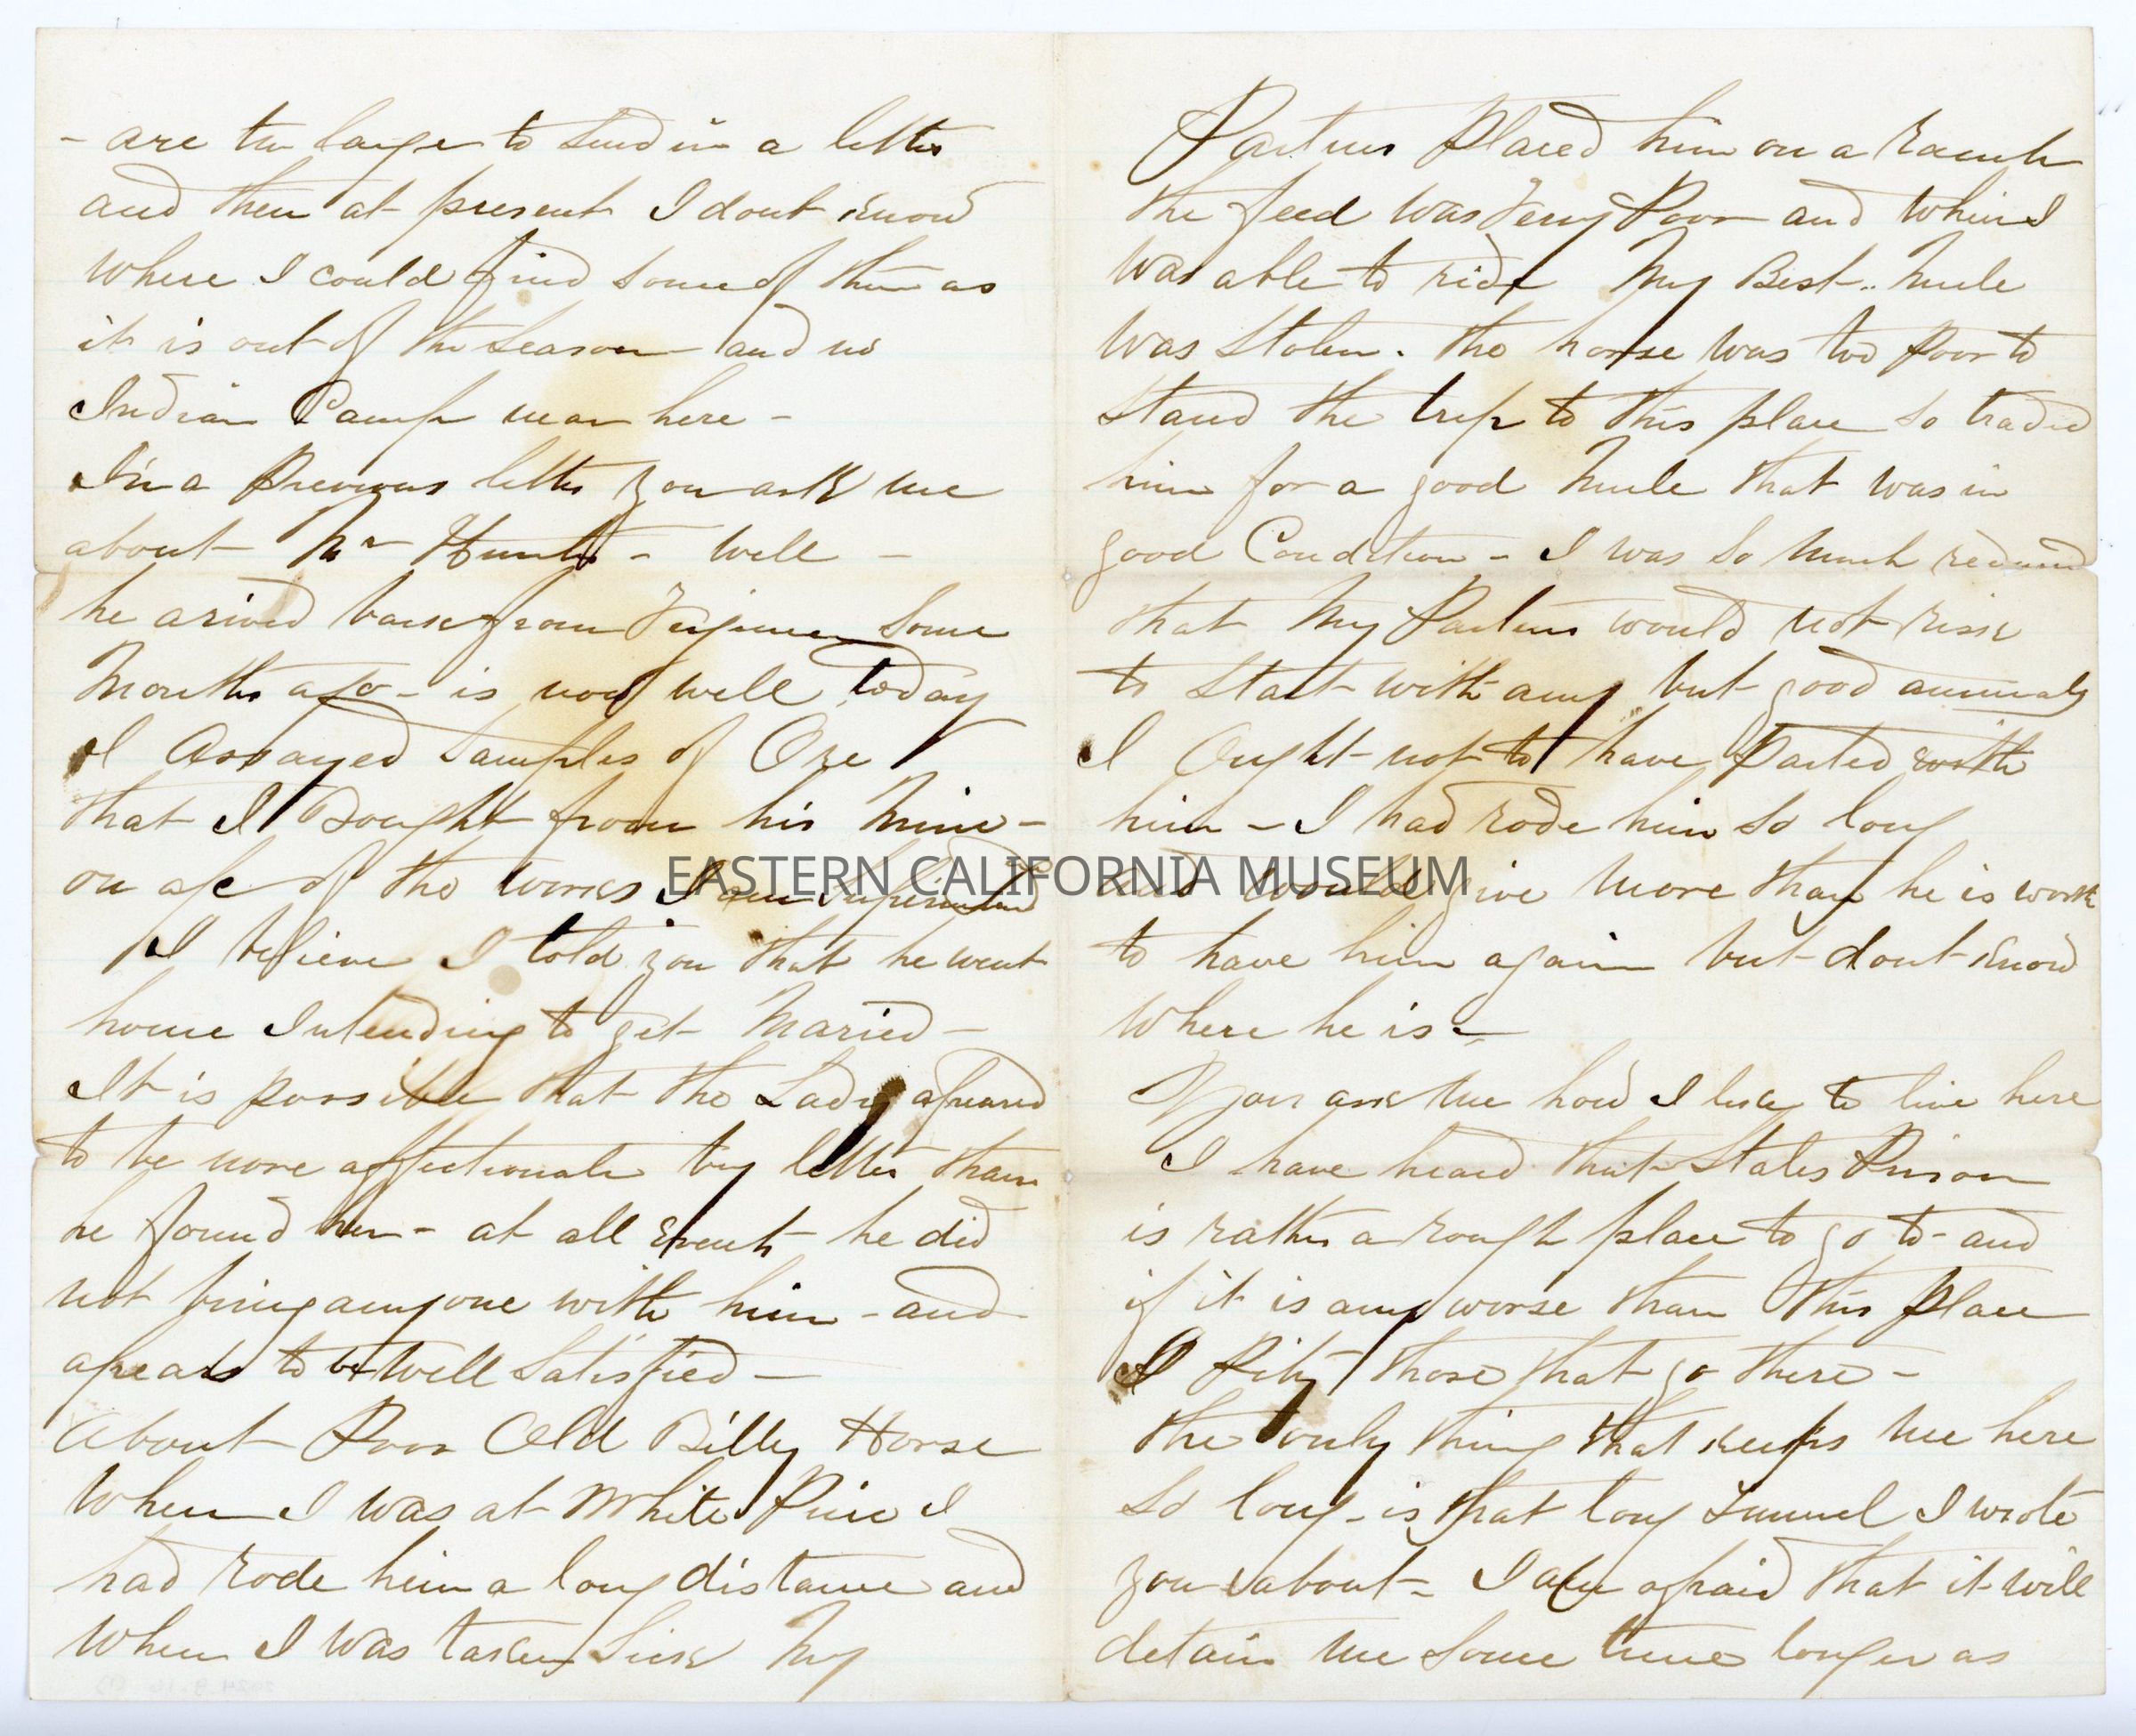 - are too large to send in a letter
and then at present I dont know
where I could find some of them as
it is out of the season and no
Indian Camp near here -
In a Previous letter you ask me
about Mr Hunter - Well -
he arived back from Virginia Some
Months ago - is now well today
I Assayed Samples of Ore
that I Bought from his Mine -
on of the works I am
I believe I told you that he went
home Intending to get Maried -
It is possible that the Lady apeared
to be more affectionate by letter than
he found her - at all Events he did
not bring anyone with him - and
apears to be Well Satisfied -
About Poor Old Billy Horse
When I was at White Pine I
had rode him a long distance and
When I Was taken Sick My
Partners Placed him on a ranch
the feed was Very Poor and When I
Was able to ride My Best .. Mule
Was Stolen. the horse was too Poor to
Stand the trip to this place so traded
him for a good Mule that was in
good Condition - I was So Much reduced
that My Partners would not risk
to Start with any but good animals
I Ought not to have Parted with
him - I had rode him So long
and would give More than he is worth
to have him again but dont know
Where he is -
You ask Me how I like to live here
I have heard that States Prison
is rather a rough place to go to - and
if it is any worse than this place
I Pity those that go there -
the only thing that keeps Me here
So long - is that long Tunnel I wrote
you about - I am afraid that it will
detain Me Some time longer as
EASTERN CALIFORNIA MUSEUM